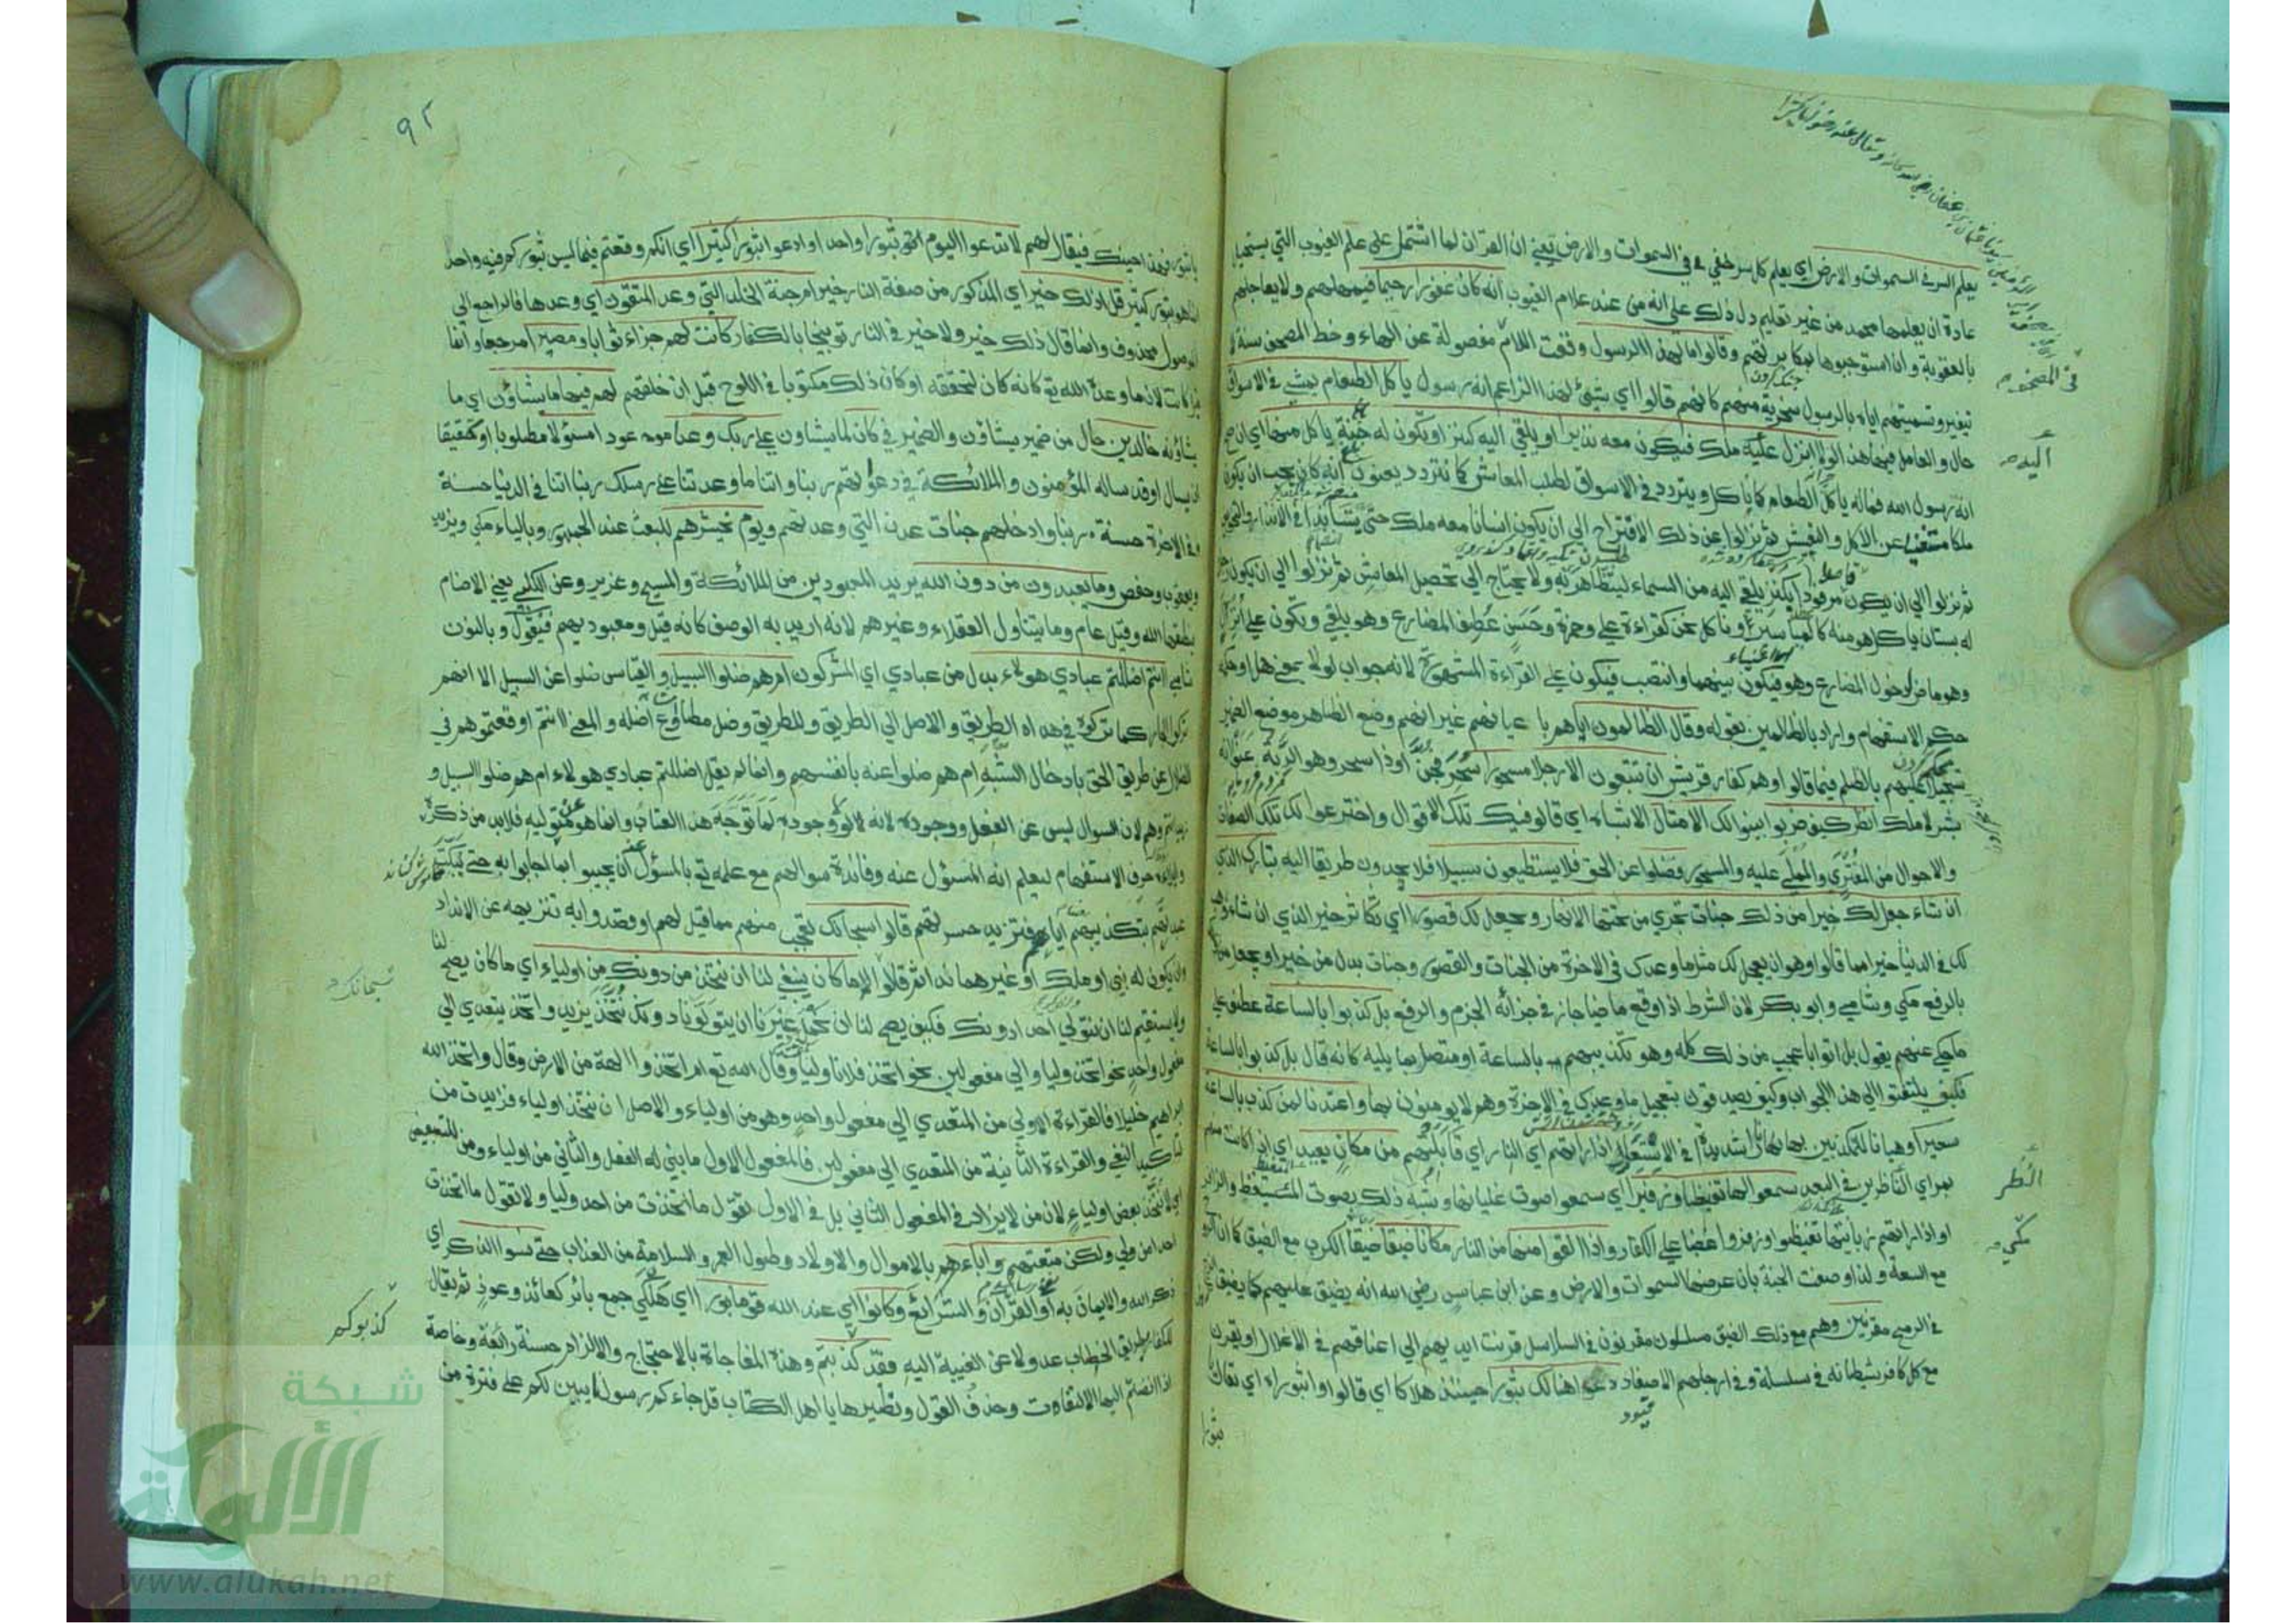 يعلم السر في السموات والارض اي يعلم كل سر خفي في السموات والارض يعني ان القرآن لما اشتمل على علم الغيوب التي يستحيل
عادة ان يعلمها محمد من غير تعليم دل ذلك على انه من عند علام الغيوب انه كان غفورا رحيما فيمهلهم ولا يعاجلهم
بالعقوبة وان استوجبوها بمكابرتهم وقالوا ما لهذا الرسول وقعت اللام مفصولة عن الهاء وخط المصحف سنة لا
تغير وتسميتهم اياه بالرسول سخرية منهم كانهم قالوا اي شيئ لهذا الزاعم انه رسول ياكل الطعام يمشي في الاسواق
حال والعامل فيها هذا لولا انزل عليه ملك فيكون معه نذيرا او يلقى اليه كنز او تكون له جنة ياكل منها اي ان صح
انه رسول الله فما له ياكل الطعام كما ناكل ويتردد في الاسواق لطلب المعاش كما نتردد يعنون انه كان يجب ان يكون
ملكا مستغنيا عن الاكل والتعيش ثم نزلوا عن ذلك الاقتراح الى ان يكون انسانا معه ملك حتى يتساندا في الانذار والتخويف
ثم نزلوا الى ان يكون مرفودا بكنز يلقى اليه من السماء ليستظهر به ولا يحتاج الى تحصيل المعاش ثم نزلوا الى ان يكون رجلا
له بستان ياكل هو منه كالمياسير او ناكل نحن كقراءة علي وحمزة وحسن عطف المضارع وهو يلقى وتكون على انزل
وهو ماض لدخول المضارع وهو فيكون بينهما وانتصب فيكون على القراءة المشهورة لانه جواب لولا بمعنى هلا وحكمه
حكم الاستفهام واراد بالظالمين بقوله وقال الظالمون اياهم باعيانهم غير انه وضع الظاهر موضع المضمر
تسجيلا عليهم بالظلم فيما قالوا وهم كفار قريش ان تتبعون الا رجلا مسحورا سحر فجن او ذا سحر وهو الرئة عنوا انه
بشر لا ملك انظر كيف ضربوا بينوا لك الامثال الاشباه اي قالوا فيك تلك الاقوال واخترعوا لك تلك الصفات
والاحوال من المفترى والمملى عليه والمسحور فضلوا عن الحق فلا يستطيعون سبيلا فلا يجدون طريقا اليه تبارك الذي
ان شاء جعل لك خيرا من ذلك جنات تجري من تحتها الانهار ويجعل لك قصورا اي تكاثر خير الذي ان شاء وهب
لك في الدنيا خيرا مما قالوا وهو ان يعجل لك مثل ما وعدك في الاخرة من الجنات والقصور وجنات بدل من خيرا ويجعل
بالرفع مكي وشامي وابو بكر لان الشرط اذا وقع ماضيا جاز في جزائه الجزم والرفع بل كذبوا بالساعة عطف على
ما حكي عنهم يقول بل اتوا باعجب من ذلك كله وهو تكذيبهم بالساعة او متصل بما يليه كانه قال بل كذبوا بالساعة
فكيف يلتفتوا الى هذا الجواب وكيف يصدقون بتعجيل ما وعدك في الاخرة وهم لا يومنون بها واعتدنا لمن كذب بالساعة
سعيرا وهيانا للمكذبين بها نارا شديدة في الاستعار اذا راتهم اي النار اي قابلتهم من مكان بعيد اي اذا كانت منهم
بمراي الناظرين في البعد سمعوا لها تغيظا وزفيرا اي سمعوا صوت غليانها وشبه ذلك بصوت المتغيظ والزافر
او اذا راتهم زبانيتها تغيظوا وزفروا غضبا على الكفار واذا القوا منها من النار مكانا ضيقا ضيقا الكرب مع الضيق كما ان الروح
مع السعة ولذا وصفت الجنة بان عرضها السموات والارض وعن ابن عباس رضي الله انه يضيق عليهم كما يضيق
في الرمح مقرنين وهم مع ذلك الضيق مسلسلون مقرنون في السلاسل قرنت ايديهم الى اعناقهم في الاغلال او يقرن
مع كل كافر شيطانه في سلسلة وفي ارجلهم الاصفاد دعوا هنالك ثبورا حينئذ هلاكا اي قالوا واثبوراه اي يقال
في المصحف
اليه
النظر
مكي
قيود
ثبورا
٩٢
يا ثبور فهذا حينك فيقال لهم لا تدعوا اليوم ثبورا واحدا وادعوا ثبورا كثيرا اي انكم وقعتم فيما ليس ثبوركم فيه واحدا
انما هو ثبور كثير قل اذلك خير اي المذكور من صفة النار خير ام جنة الخلد التي وعد المتقون اي وعدها فالراجع الى
الموصول محذوف وانما قال ذلك خير ولا خير في النار توبيخا بالكفار كانت لهم جزاء ثوابا ومصيرا مرجعا وانما
قيل كانت لان ما وعد الله تع كانه كان لتحققه او كان ذلك مكتوبا في اللوح قبل ان خلقهم لهم فيها ما يشاؤن اي ما
يشاؤنه خالدين حال من ضمير يشاؤن والضمير في كان لما يشاون على ربك وعدا موعودا مسؤلا مطلوبا او حقيقا
ان يسال او قد ساله المؤمنون والملائكة في دعواتهم ربنا واتنا ما وعدتنا على رسلك ربنا اتنا في الدنيا حسنة
وفي الاخرة حسنة ربنا وادخلهم جنات عدن التي وعدتهم ويوم نحشرهم للبعث عند الجمهور وبالياء مكي ويزيد
ويعقوب وحفص وما يعبدون من دون الله يريد المعبودين من الملائكة والمسيح وعزير وعن الكلبي يعني الاصنام
ينطقها الله وقيل عام وما يتناول العقلاء وغيرهم لانه اريد به الوصف كانه قيل ومعبوديهم فيقول وبالنون
شامي اانتم اضللتم عبادي هولاء بدل من عبادي اي المشركون ام هم ضلوا السبيل والقياس ضلوا عن السبيل الا انهم
تركوا الجار كما تركوه في هداه الطريق والاصل الى الطريق وللطريق وضل مطاوع اضله والمعنى اانتم اوقعتموهم في
الضلال عن طريق الحق بادخال الشبه ام هم ضلوا عنه بانفسهم وانما لم يقل اضللتم عبادي هولاء ام هم ضلوا السبيل و
زيد انتم وهم لان السوال ليس عن الفعل ووجوده لانه لولا وجوده لما توجه هذا العتاب وانما هو عن متوليه فلا بد من ذكره
وايلائه حرف الاستفهام ليعلم انه المسؤل عنه وفائدة سوالهم مع علمه تع بالمسؤل عنه ان يجيبوا بما اجابوا به حتى يبكت
عبدتهم بتكذيبهم اياهم فتزيد حسرتهم قالوا سبحانك تعجب منهم مما قيل لهم او قصدوا به تنزيهه عن الانداد
وان يكون له نبي او ملك او غيرهما ندا ثم قالوا ما كان ينبغي لنا ان نتخذ من دونك من اولياء اي ما كان يصح لنا
ولا يستقيم لنا ان نتولى احدا دونك فكيف يصح لنا ان نحمل غيرنا ان يتولونا دونك نتخذ يزيد واتخذ يتعدى الى
مفعول واحد نحو اتخذ وليا والى مفعولين نحو اتخذ فلانا وليا وقال الله تع ام اتخذوا الهة من الارض وقال واتخذ الله
ابراهيم خليلا فالقراءة الاولى من المتعدي الى مفعول واحد وهو من اولياء والاصل ان نتخذ اولياء فزيدت من
لتاكيد النفي والقراءة الثانية من المتعدي الى مفعولين فالمفعول الاول ما بني له الفعل والثاني من اولياء ومن للتبعيض
اي لا نتخذ بعض اولياء لان من لا يزاد في المفعول الثاني بل في الاول تقول ما اتخذت من احد وليا ولا تقول ما اتخذت
احدا من ولي ولكن متعتهم واباءهم بالاموال والاولاد وطول العمر والسلامة من العذاب حتى نسوا الذكر اي
ذكر الله والايمان به او القرآن والشرائع وكانوا اي عند الله قوما بورا اي هلكى جمع بائر كعائذ وعوذ ثم يقال
للكفار بطريق الخطاب عدولا عن الغيبة اليه فقد كذبتم وهذه المفاجاة بالاحتجاج والالزام حسنة رائعة وخاصة
اذا انضم اليها الالتفات وحذف القول ونظيرها يا اهل الكتاب قد جاءكم رسولنا يبين لكم على فترة من
كذبوكم
شبكة
الألوكة
www.alukah.net